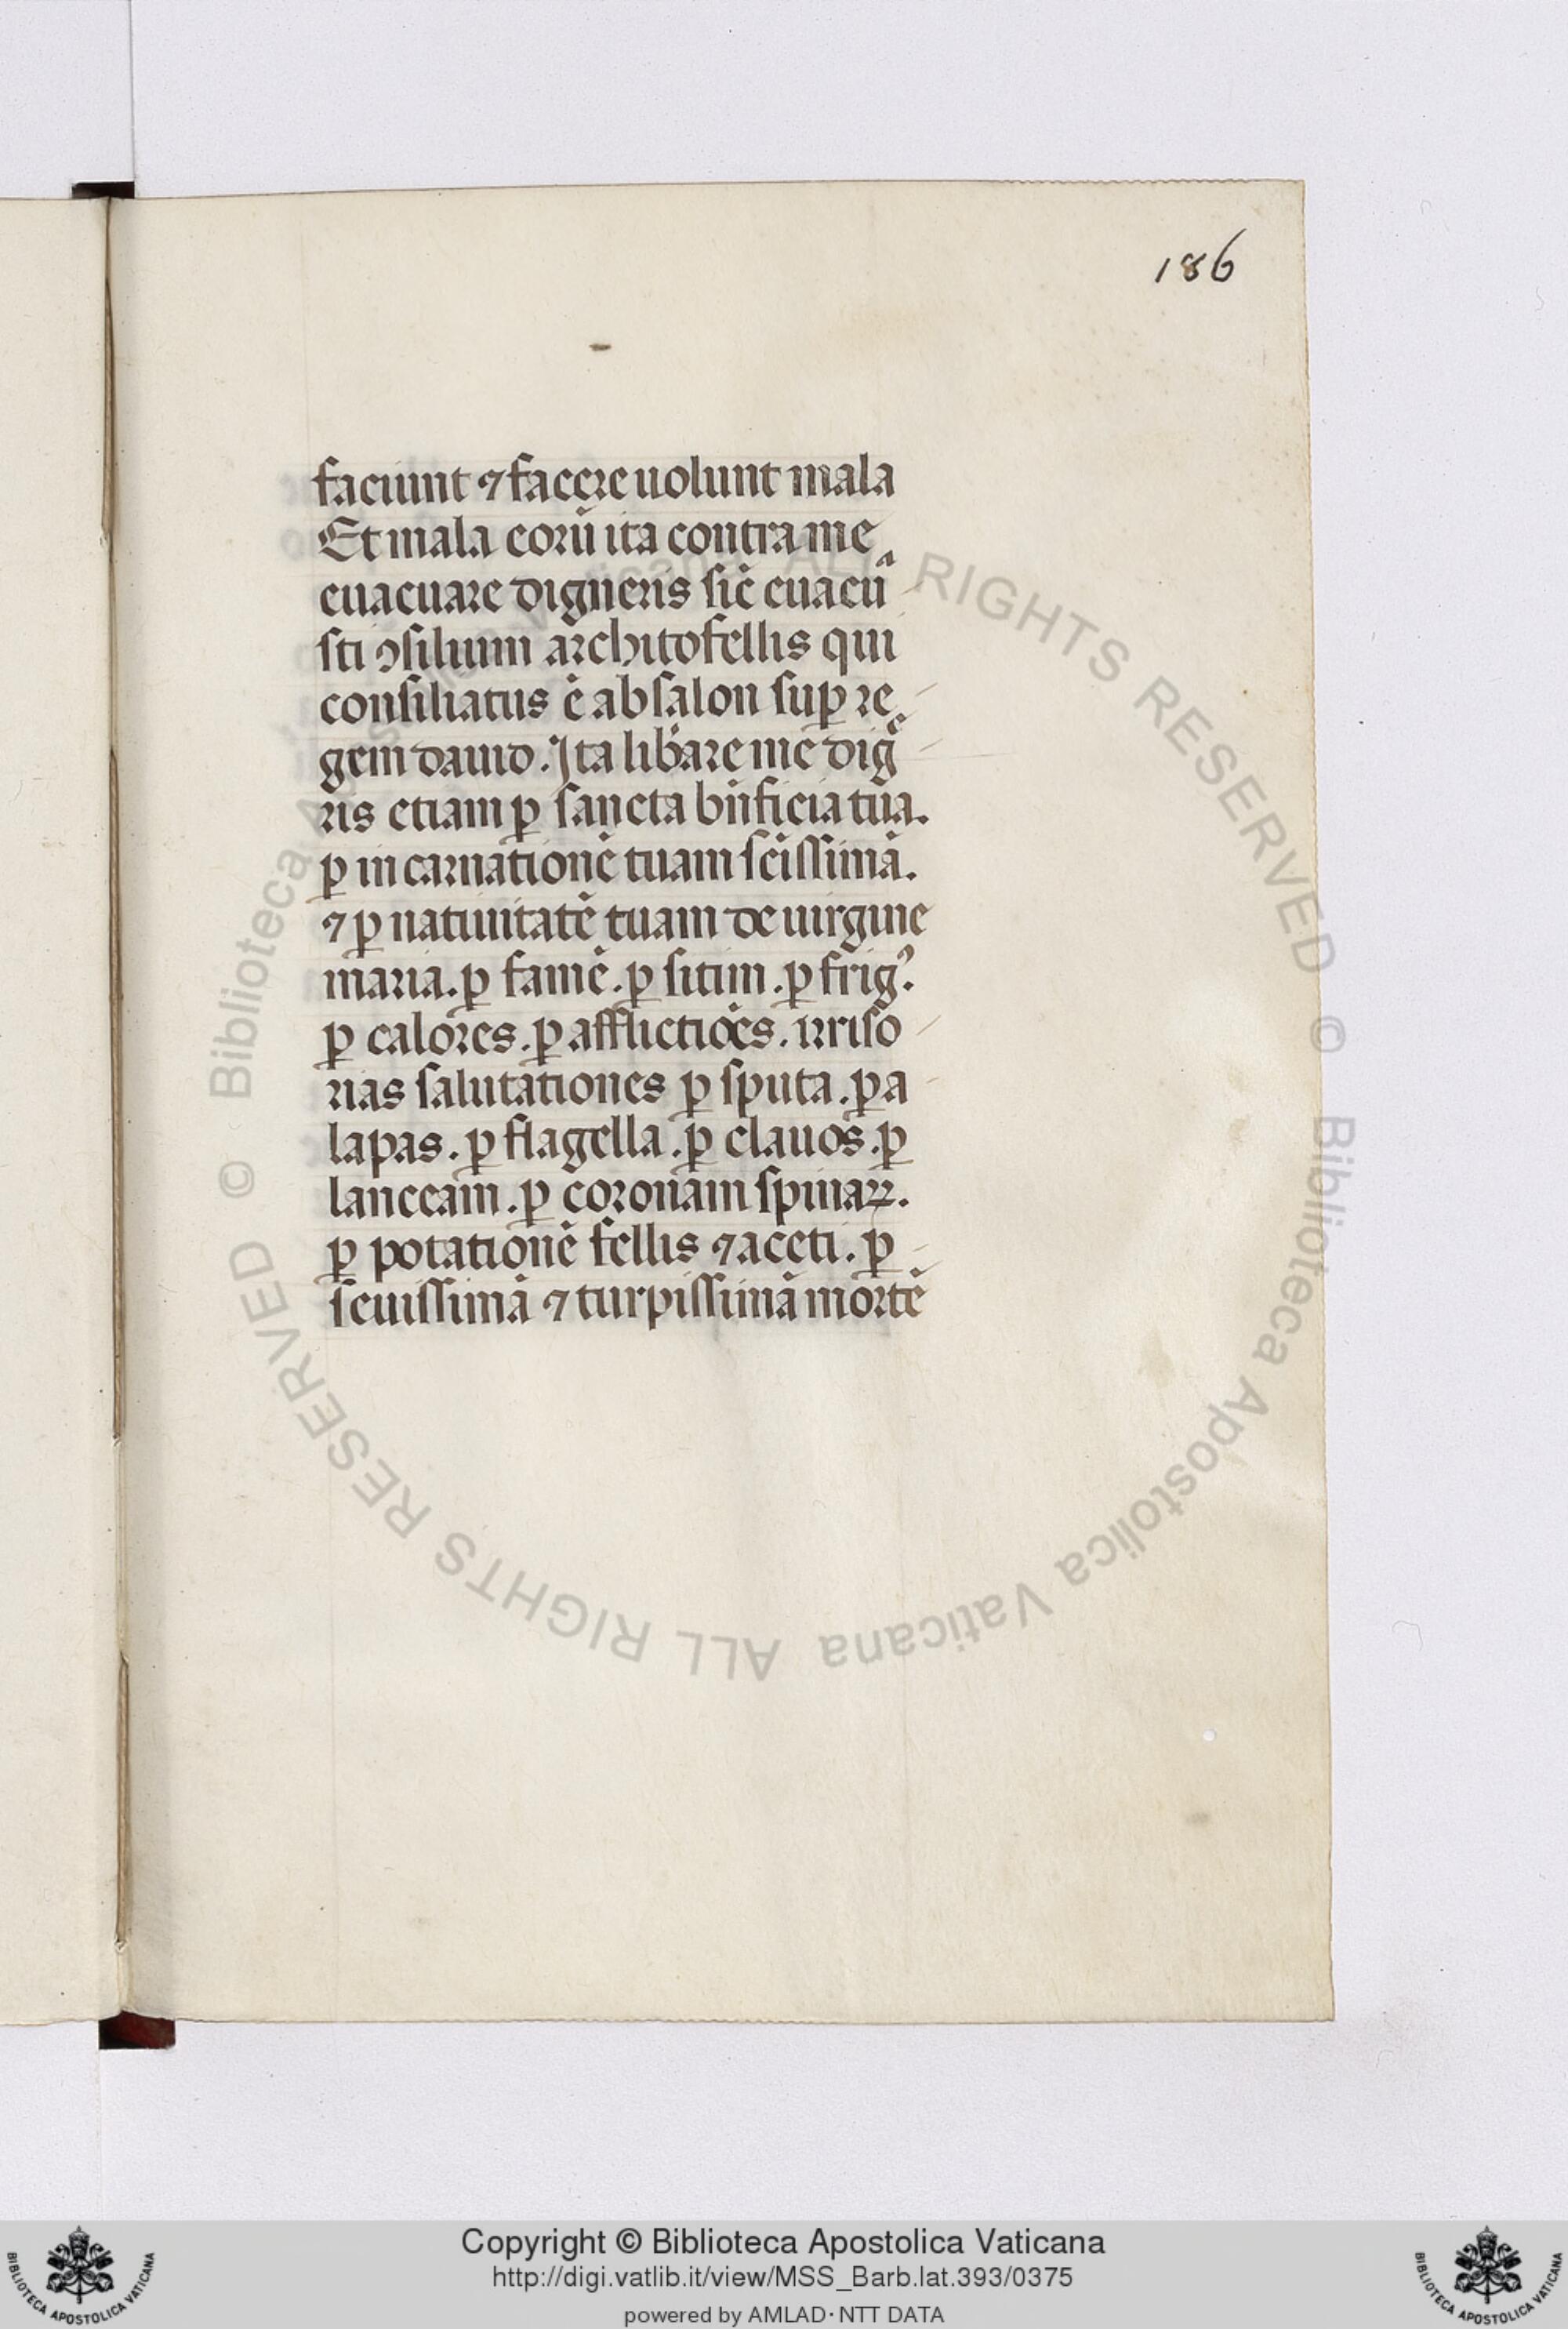 186
faciunt ⁊ facere uolunt mala
Et mala eorū ita contra me
euacuare digneris sic̄ euacuᵃ
sti ꝯsilium architofellis qui
consiliatus ē absalon suꝑ re
gem dauid. Ita lib̄are me digᵉ
ris etiam ꝑ sancta bn̄ficia tua.
ꝑ incarnationē tuam sc̄issimā.
⁊ ꝑ natiuitatē tuam de uirgine
maria. ꝑ famē. ꝑ sitim. ꝑ frigꝰ.
ꝑ calores. ꝑ afflictiōes. irriso
rias salutationes ꝑ sputa. ꝑ a
lapas. ꝑ flagella. ꝑ clauos. ꝑ
lanceam. ꝑ coronam spinaꝝ.
ꝑ potationē fellis ⁊ aceti. ꝑ
seuissimā ⁊ turpissimā mortē
© Biblioteca Apostolica Vaticana ALL RIGHTS RESERVED
© Biblioteca Apostolica Vaticana ALL RIGHTS RESERVED
Copyright © Biblioteca Apostolica Vaticana
http://digi.vatlib.it/view/MSS_Barb.lat.393/0375
powered by AMLAD·NTT DATA
BIBLIOTECA APOSTOLICA VATICANA
BIBLIOTECA APOSTOLICA VATICANA